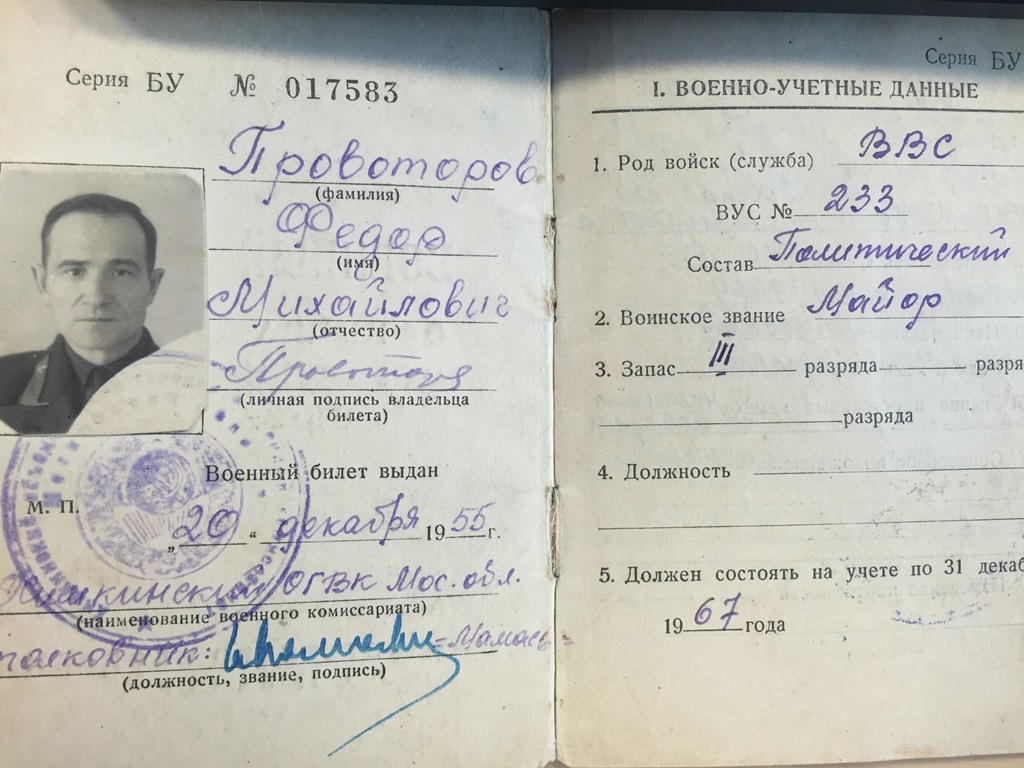 Серия БУ № 017583
Провоторов
(фамилия)
Федор
(имя)
Михайлович
(отчество)
(личная подпись владельца
билета)
Военный билет выдан
М. П.
„20“ декабря 1955 г.
ОГВК Мос. обл.
(наименование военного комиссариата)
полковник:
(должность, звание, подпись)
Серия БУ
I. ВОЕННО-УЧЕТНЫЕ ДАННЫЕ
1. Род войск (служба) ВВС
ВУС № 233
Состав Политический
2. Воинское звание Майор
3. Запас III разряда разря
разряда
4. Должность
5. Должен состоять на учете по 31 декаб
1967 года